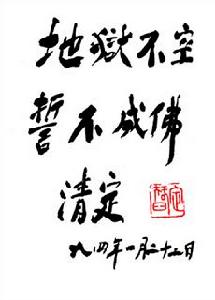 地獄不空
誓不成佛
清定
九四年一月二十日